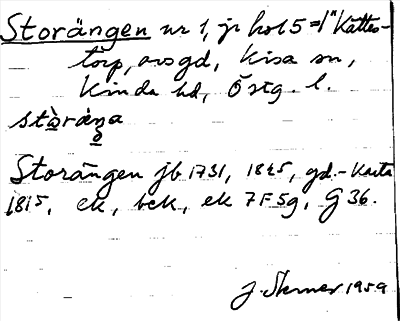 Storängen nr 1, jr hol 5 = 1" Kättes-
torp, avsgd, Kisa sn,
Kinda hd, Östg. l.
Storängen jb 1731, 1825, gd.-karta
1815, ek, bek, ek 7F5g, G 36.
J. Skener 1959